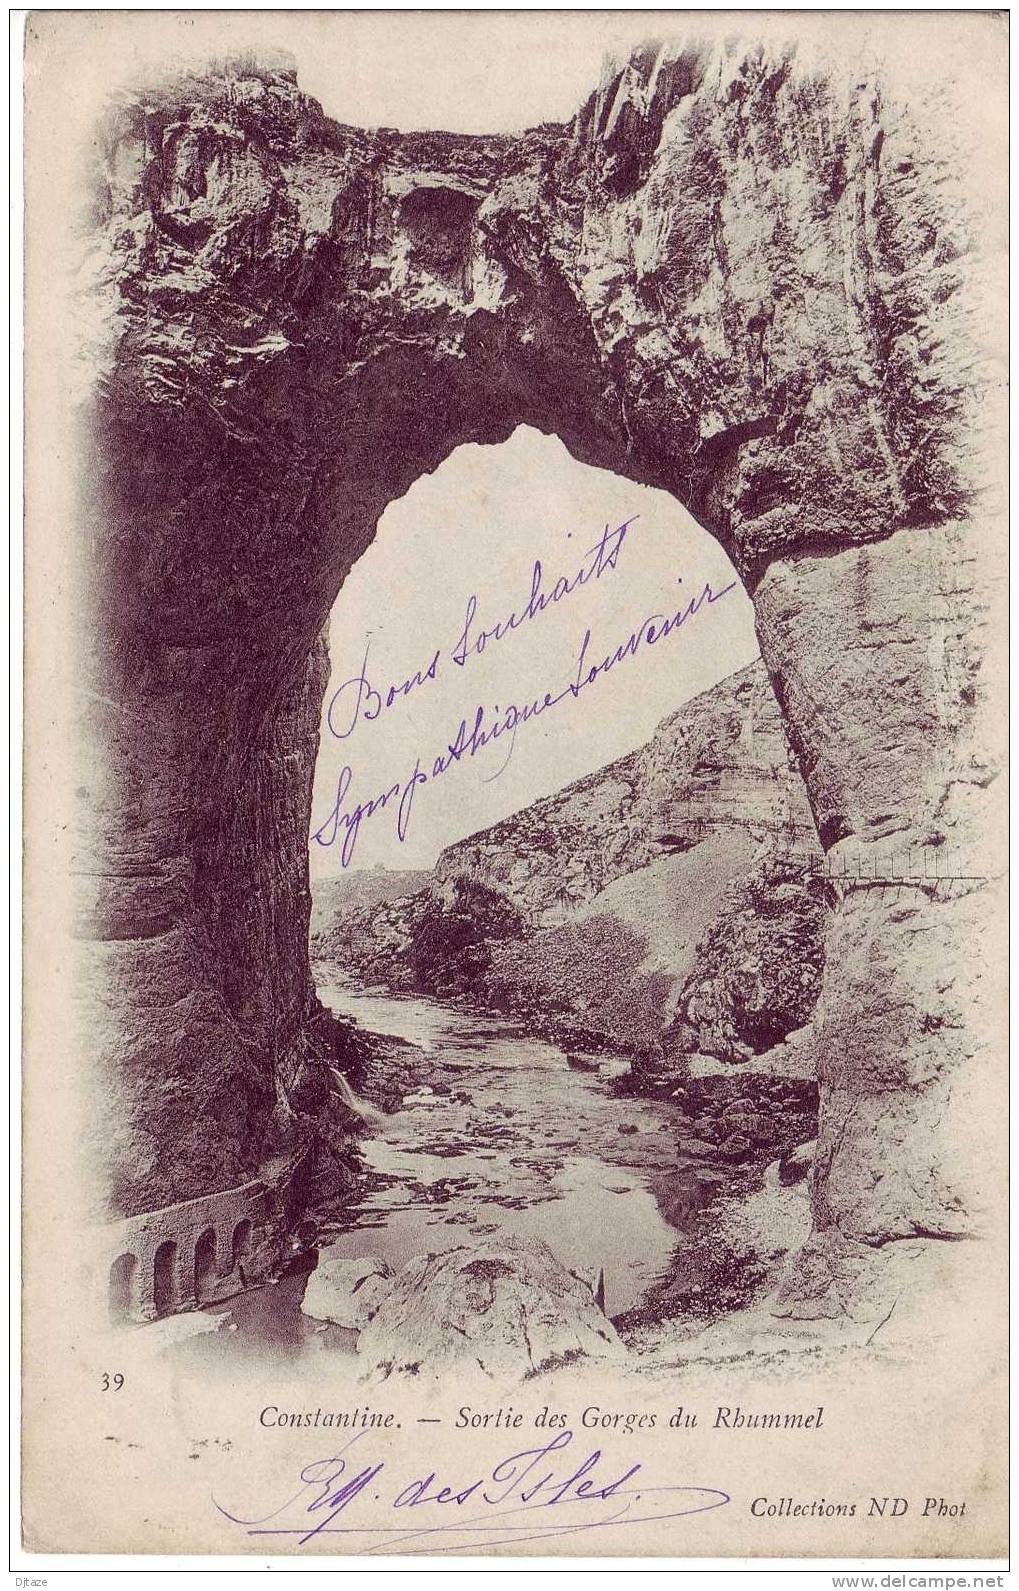 Bons Souhaits
Sympathique Souvenir
39
Constantine. — Sortie des Gorges du Rhummel
des Isles.
Collections ND Phot
Djtaze
www.delcampe.net